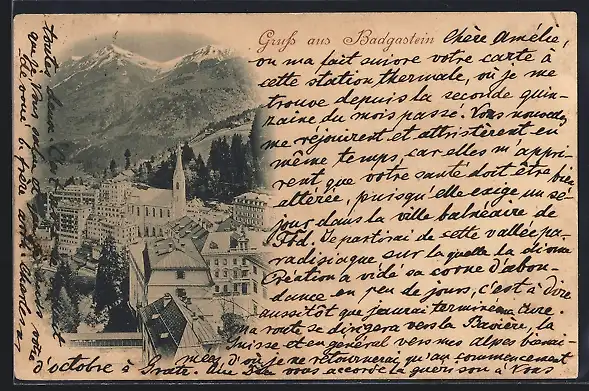 Gruß aus Badgastein
Chère Amélie,
on m'a fait suivre votre carte à
cette station thermale, où je me
trouve depuis la seconde quin-
zaine du mois passé. Vos nouvelles
me réjouirent et attristèrent en
même temps, car elles m'appri-
rent que votre santé doit être bien
altérée, puisqu'elle exige un sé-
jour dans la ville balnéaire de
Je partirai de cette vallée pa-
radisiaque sur laquelle la
Création a vidé sa corne d'abon-
dance en peu de jours, c'est à dire
aussitôt que j'aurai terminé ma Cure.
Ma route se dirigera vers la Bavière, la
Suisse et en général vers mes alpes
d'où je ne retournerai qu'au commencement
d'octobre à Gratz. Que Dieu vous accorde la guérison à Vous
toutes deux
que je Vous
votre